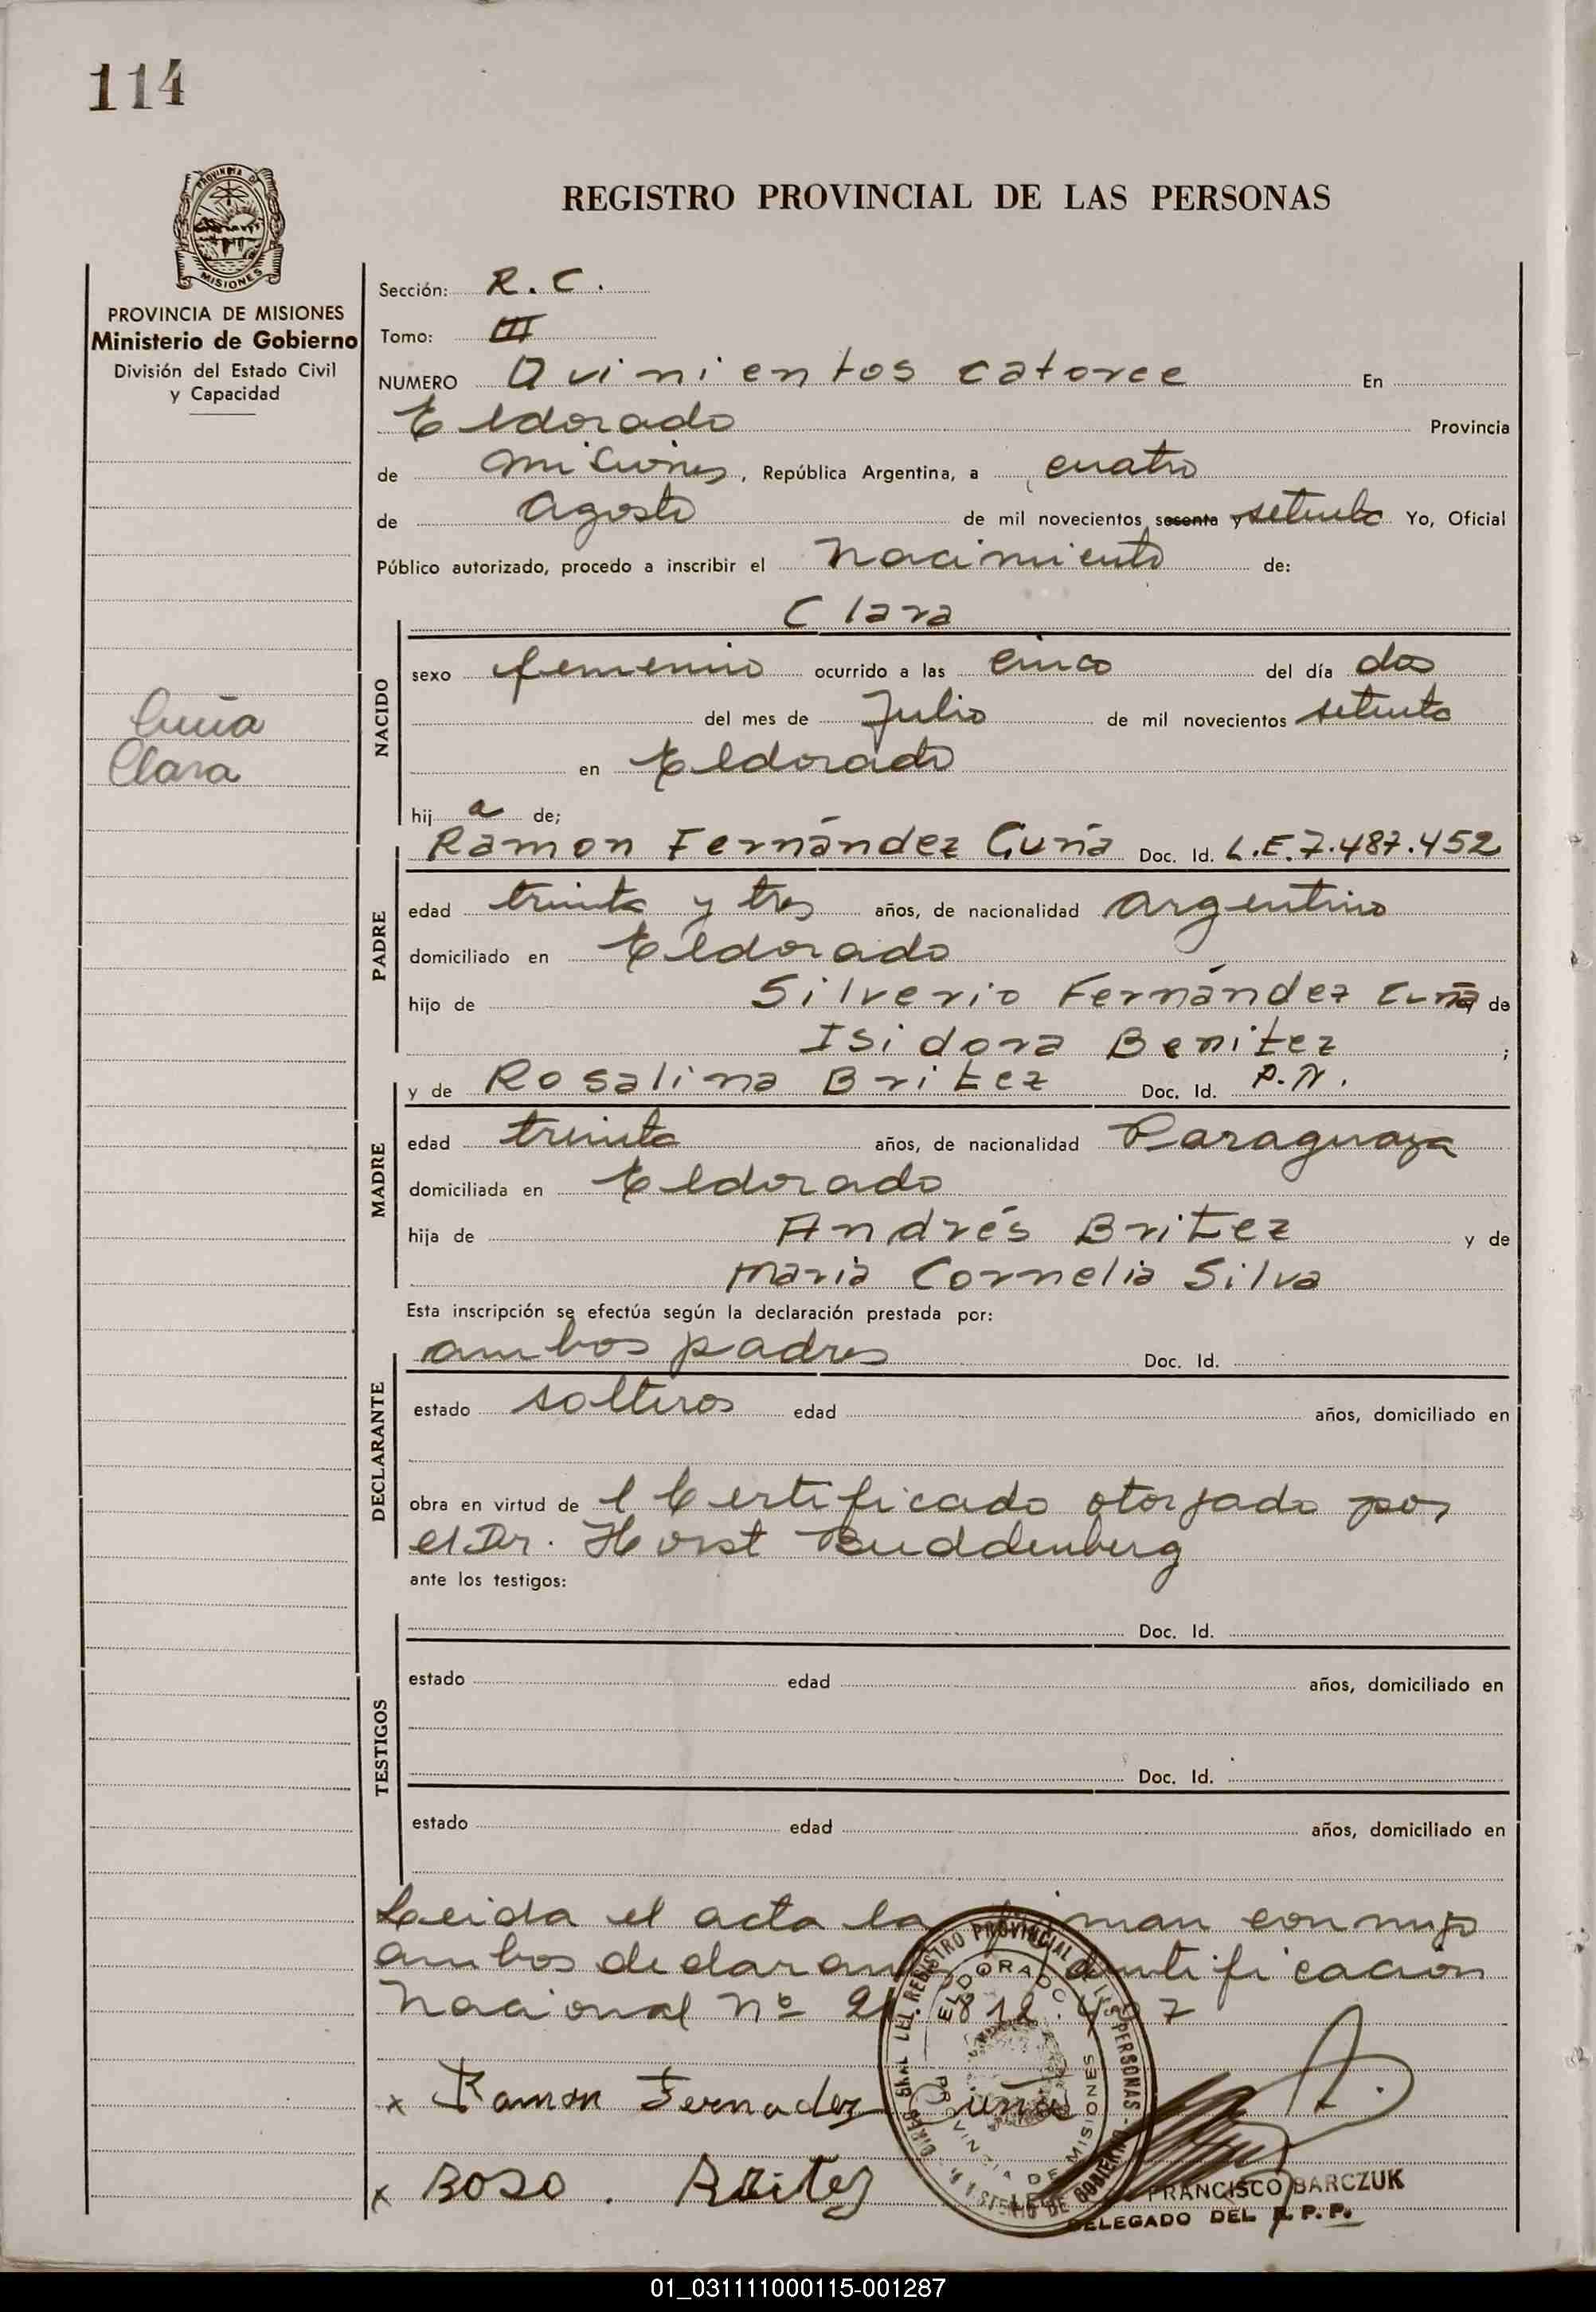 114
REGISTRO PROVINCIAL DE LAS PERSONAS
PROVINCIA DE MISIONES
Ministerio de Gobierno
División del Estado Civil
y Capacidad
Cuña
Clara
Sección: R. C.
Tomo: III
NUMERO Quinientos catorce En
Eldorado Provincia
de Misiones, República Argentina, a cuatro
de Agosto de mil novecientos sesenta y setenta Yo, Oficial
Público autorizado, procedo a inscribir el Nacimiento de:
Clara
NACIDO
sexo femenino ocurrido a las cinco del día dos
del mes de Julio de mil novecientos setenta
en Eldorado
hij a de;
Ramon Fernández Cuña Doc. Id. L.E. 7.487.452
PADRE
edad treinta y tres años, de nacionalidad Argentino
domiciliado en Eldorado
hijo de Silverio Fernández Cuña y de
Isidora Benitez ;
y de Rosalina Britez Doc. Id. P.N.
MADRE
edad treinta años, de nacionalidad Paraguaya
domiciliada en Eldorado
hija de Andrés Britez y de
Maria Cornelia Silva
Esta inscripción se efectúa según la declaración prestada por:
ambos padres Doc. Id.
DECLARANTE
estado solteros edad años, domiciliado en
obra en virtud de l Certificado otorgado por
el Dr. Horst Buddenberg
ante los testigos:
TESTIGOS
Doc. Id.
estado edad años, domiciliado en
Doc. Id.
estado edad años, domiciliado en
Leida el acta la firman conmigo
ambos declarantes identificacion
Nacional Nº
x Ramon Fernadez Cuña
x Roso. Britez
DIREC. GRAL. DEL REGISTRO PROVINCIAL DE LAS PERSONAS
ELDORADO
PROVINCIA DE MISIONES
MINISTERIO DE GOBIERNO
FRANCISCO BARCZUK
DELEGADO DEL R. P. P.
01_031111000115-001287